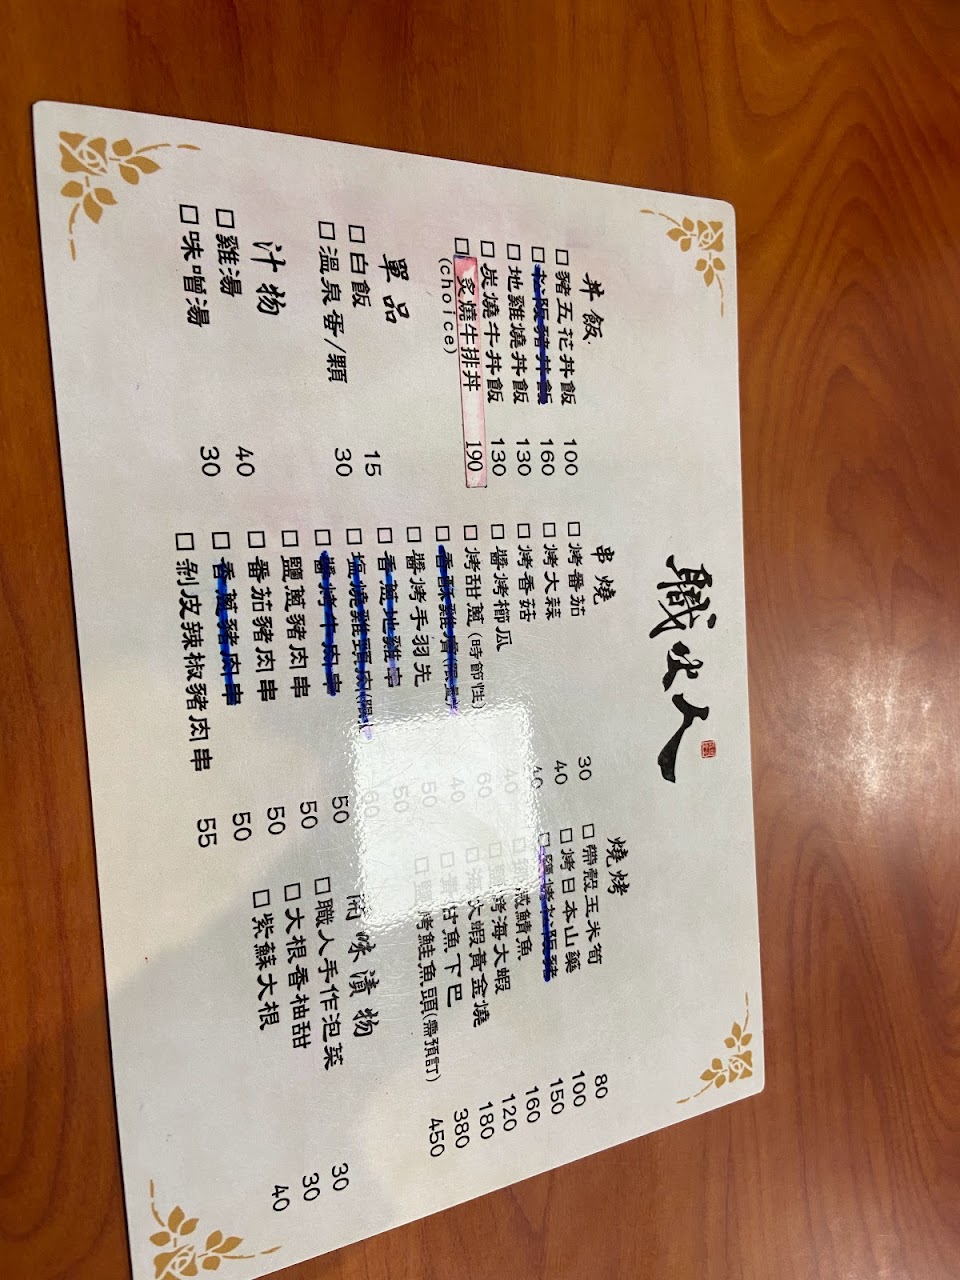 職火人
丼飯
□豬五花丼飯 100
□松阪豬丼飯 160
□地雞燒丼飯 130
□炭燒牛丼飯 130
□炙燒牛排丼 190
(choice)
單品
□白飯 15
□溫泉蛋/顆 30
汁物
□雞湯 40
□味噌湯 30
串燒
□烤番茄 30
□烤大蒜 40
□烤香菇 40
□醬烤櫛瓜 40
□烤甜蔥(時節性) 60
□香酥雞膚(限量) 40
□醬烤手羽先 50
□香蔥地雞串 50
□塩燒雞頸肉(限 60
□醬烤牛肉串 50
□鹽蔥豬肉串 50
□番茄豬肉串 50
□香蔥豬肉串 50
□剝皮辣椒豬肉串 55
燒烤
□帶殼玉米筍 80
□烤日本山藥 100
□鹽烤松阪豬 150
□ 鯖魚 160
□ 烤海大蝦 120
□ 火蝦黃金燒 180
□ 魚下巴 380
□ 烤鮭魚頭(需預訂) 450
開味漬物
□職人手作泡菜 30
□大根香柚甜 30
□紫蘇大根 40